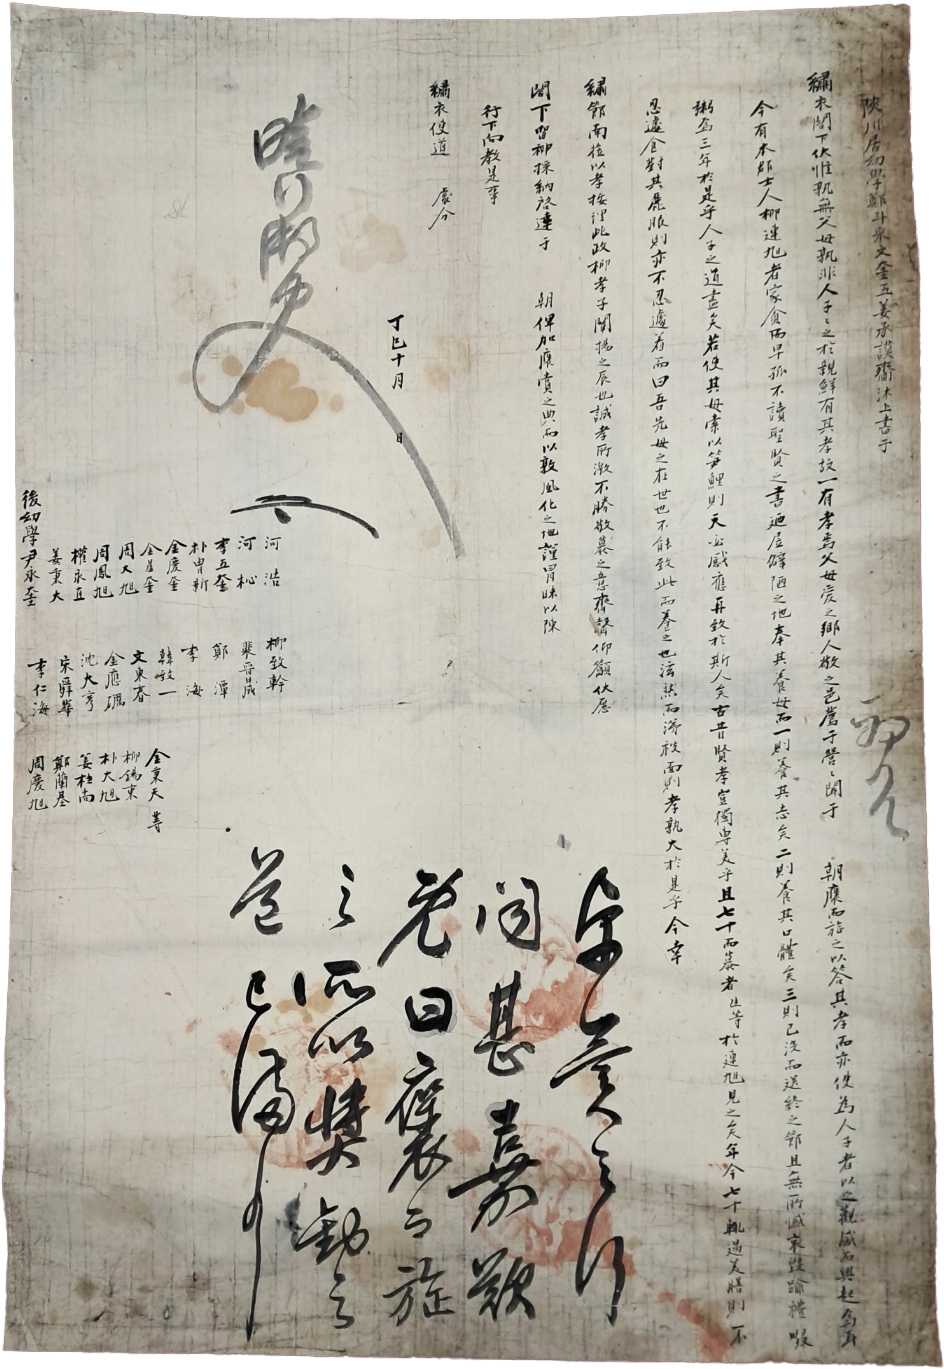 陜川居幼學鄭斗東文奎五姜永謨齋沐上書于
繡衣閤下伏惟孰無父母孰非人子子之於親鮮有其孝故一有孝焉父母愛之鄉人敬之邑薦于營營聞于 朝廩而旌之以答其孝而亦使爲人子者以之觀感而興起焉耳
今有本郡士人柳連旭者家貧而早孤不讀聖賢之書迺居僻陋之地奉其養母而一則養其志矣二則養其口體矣三則已沒而送終之節且無所憾哀毁踰禮啜
粥爲三年於是乎人子之道盡矣若使其母索以笋鯉則天必感應再致於斯人矣古昔賢孝豈獨專美乎且七十而慕者生等於連旭見之矣年今七十輒過美膳則不
忍遽食對其麗服則亦不忍遽着而曰吾先母之在世也不能致此而養之也泫然而涕被面則孝孰大於是乎今幸
繡節南莅以孝按理此政柳孝子闡揚之辰也誠孝所激不勝敬慕之意齊聲仰籲伏愿
閤下留神採納啓達于 朝俾加廩賚之典而以敦風化之地謹冒昧以陳
行下向教是事
繡衣使道 處分
丁巳十月 日
河浩 柳致幹
河杺 裵晉晟
李五奎 鄭潭
朴冑新 李海
金慶奎 韓敬一 金東天 等
金星奎 文東春 柳錫東
周天旭 金應碼 朴大旭
周鳳旭 沈大亨 姜柱尚
權永直 宋舜華 鄭蘭基
姜秉大 李仁海 周慶旭
後幼學尹永奎
卓異之行
聞甚嘉歎
兊曰褒之旌
之所以奬勸之
道已備